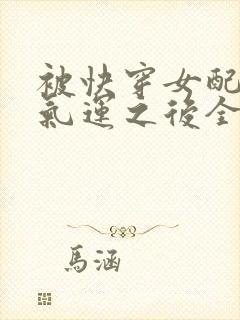 被快穿女配
氣運之後全
馬涵